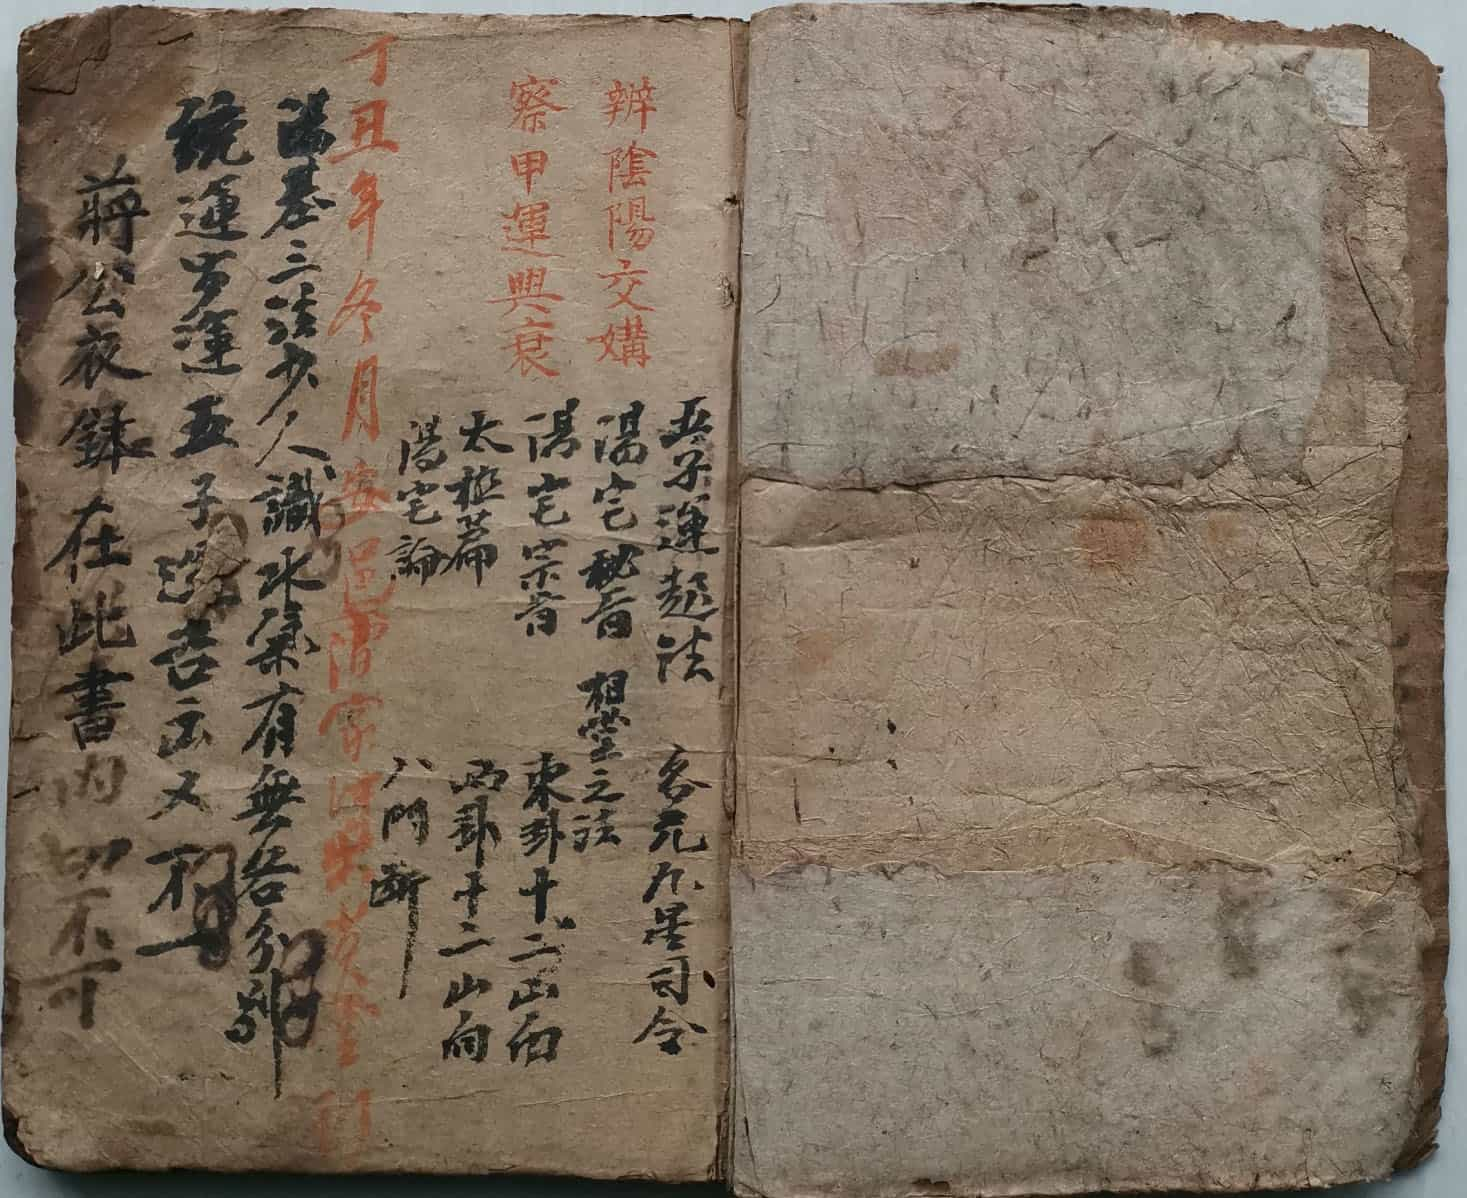 辨陰陽交媾
察甲運興衰
五子運起法
各元九星司令
陽宅秘旨
相堂之法
陽宅宗旨
東卦十二山向
太極篇
西卦十二山向
陽宅論
八門斷
丁丑年冬月安邑
陽基三法少人識水氣有無各分別
統運步運五子選吉凶又
蔣公衣鉢在此書內切不可